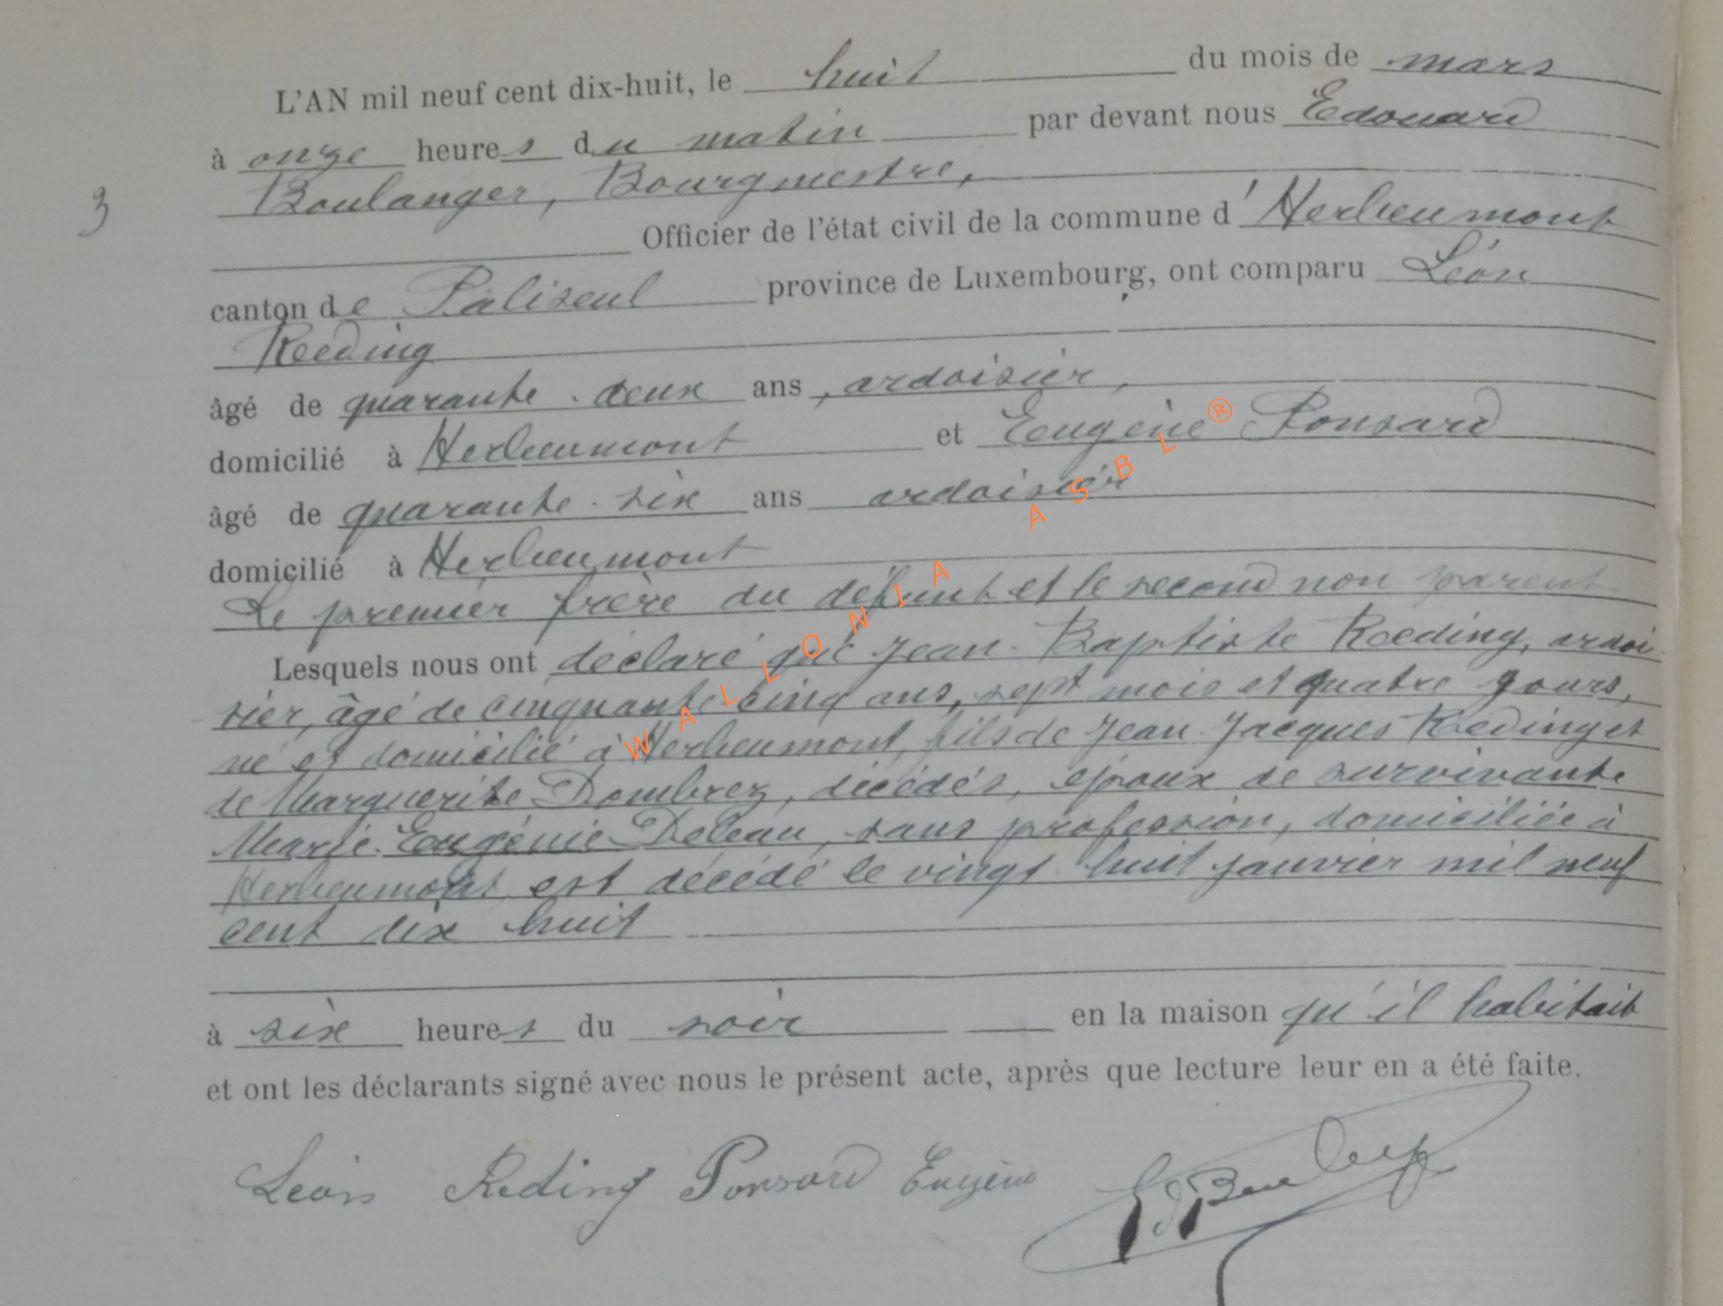 L'AN mil neuf cent dix-huit, le huit du mois de mars
à onze heures du matin par devant nous Edouard
Boulanger, Bourgmestre,
3
Officier de l'état civil de la commune d'Herbeumont
canton de Paliseul province de Luxembourg, ont comparu Léon
Reeding
âgé de quarante-deux ans, ardoisier,
domicilié à Herbeumont et Eugène Ponsard
âgé de quarante-six ans ardoisier
domicilié à Herbeumont
Le premier frère du défunt et le second non parent
Lesquels nous ont déclaré que Jean-Baptiste Reeding, ardoi-
sier, âgé de cinquante-cinq ans, sept mois et quatre jours,
né et domicilié à Herbeumont, fils de Jean-Jacques Reding et
de Marguerite Dombrez, décédés, époux de survivante
Marie-Eugénie Deleau, sans profession, domiciliée à
Herbeumont est décédé le vingt-huit janvier mil neuf
cent dix huit
à six heures du soir en la maison qu'il habitait
et ont les déclarants signé avec nous le présent acte, après que lecture leur en a été faite.
Léon Reding Ponsard Eugène
WALLONIA ASBL®